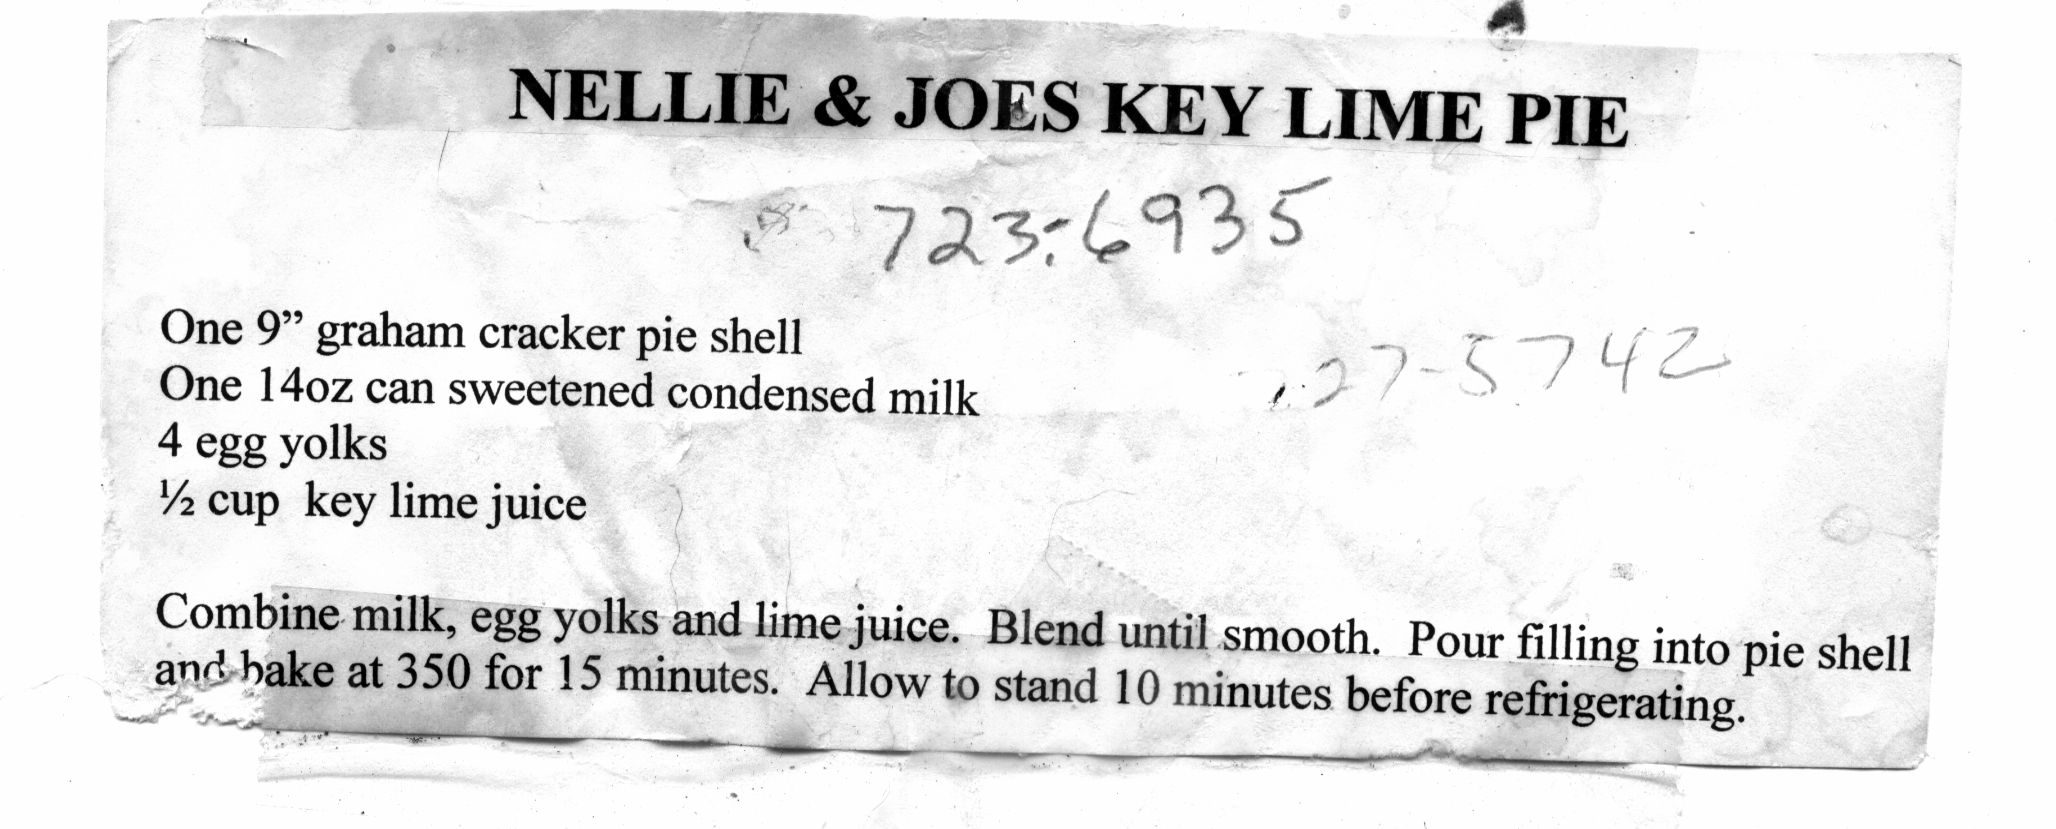 NELLIE & JOES KEY LIME PIE
723-6935
One 9” graham cracker pie shell
One 14oz can sweetened condensed milk
727-5742
4 egg yolks
½ cup key lime juice
Combine milk, egg yolks and lime juice. Blend until smooth. Pour filling into pie shell
and bake at 350 for 15 minutes. Allow to stand 10 minutes before refrigerating.